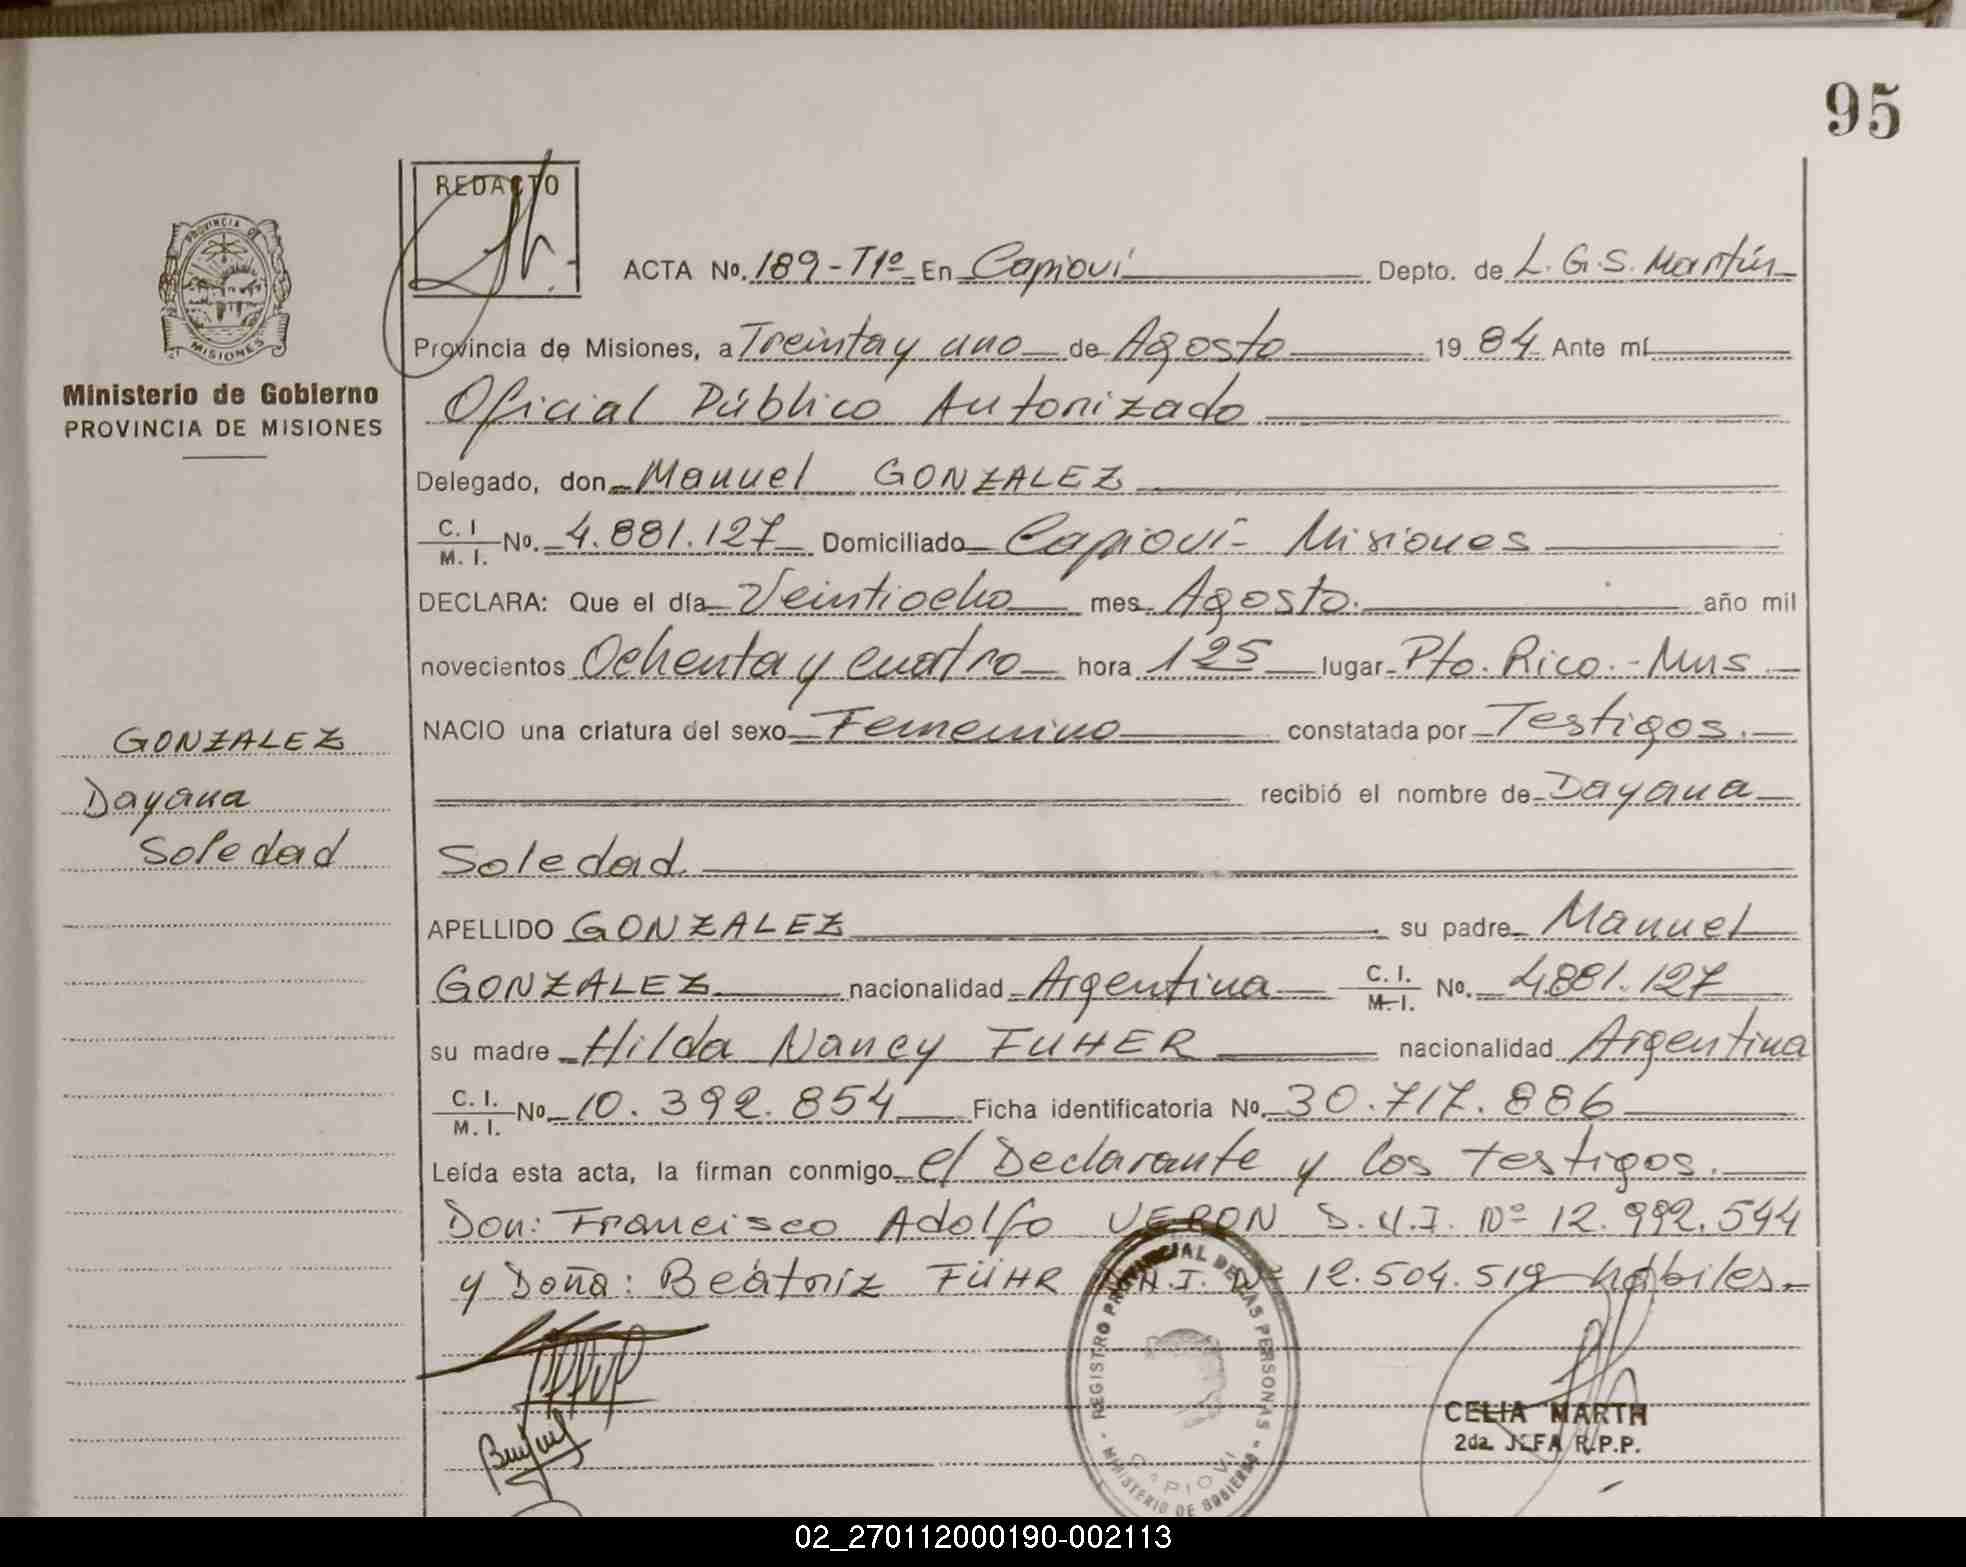 95
REDACTO
PROVINCIA DE
MISIONES
ACTA No. 189-T1º En Capioví Depto. de L.G.S. Martín
Provincia de Misiones, a Treinta y uno de Agosto 1984 Ante mí
Ministerio de Gobierno
PROVINCIA DE MISIONES
Oficial Público Autorizado
Delegado, don Manuel GONZALEZ
C. I. / M. I. No. 4.881.127 Domiciliado Capioví - Misiones
DECLARA: Que el día Veintiocho mes Agosto. año mil
novecientos Ochenta y cuatro hora 125 lugar Pto. Rico.- Mns.
NACIO una criatura del sexo Femenino constatada por Testigos.
GONZALEZ
Dayana
Soledad
recibió el nombre de Dayana
Soledad
APELLIDO GONZALEZ su padre Manuel
GONZALEZ nacionalidad Argentina C. I. / M. I. No. 4881.127
su madre Hilda Nancy FUHER nacionalidad Argentina
C. I. / M. I. No. 10.392.854 Ficha identificatoria No. 30.717.886
Leída esta acta, la firman conmigo el Declarante y los testigos.
Don: Francisco Adolfo VERON D.N.I. Nº 12.992.544
y Doña: Beátriz FÜHR D.N.I. Nº 12.504.519 hábiles.-
REGISTRO PROVINCIAL DE LAS PERSONAS
MINISTERIO DE GOBIERNO
CAPIOVI
CELIA MARTH
2da. JEFA R.P.P.
02_270112000190-002113